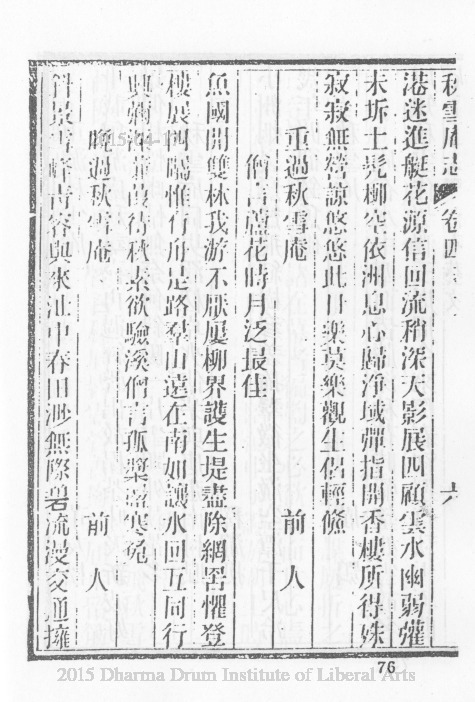 秋雪庵志 卷四 六
港迷進艇花源信回流稍深天影展四顧雲水幽弱雚
未坼土髡柳空依洲息心歸淨域彈指開香樓所得殊
寂寂無營諒悠悠此日樂莫樂觀生侶輕鯈
重過秋雪庵 前人
僧言蘆花時月泛最佳
魚國開雙林我游不厭屢柳界護生堤盡除網罟懼登
樓展四臨惟行舟是路羣山遠在南如讓水回互同行
興彌葭菼待秋素欲驗溪僧言孤槳盪寒兔
晚過秋雪庵 前人
斜景雪峰青容與來沚中春田渺無際碧流漫交通擁
76
2015 Dharma Drum Institute of Liberal Arts